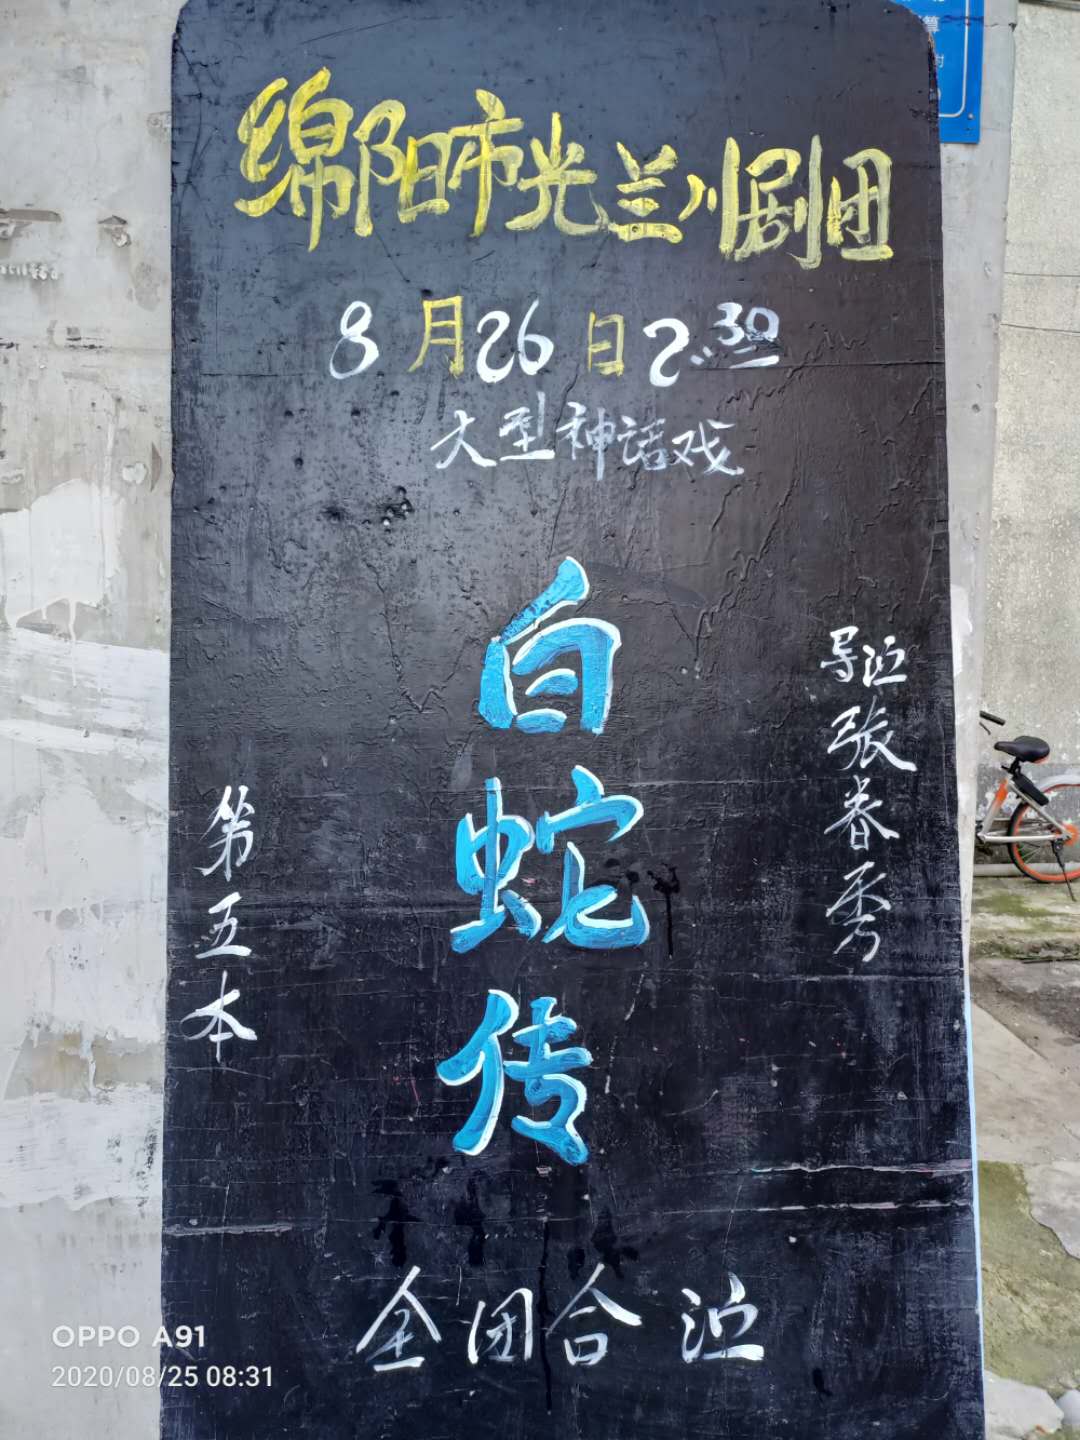 绵阳市光兰川剧团
8月26日2:30
大型神话戏
导演张春秀
白蛇传
第五本
全团合演
OPPO A91
2020/08/25 08:31